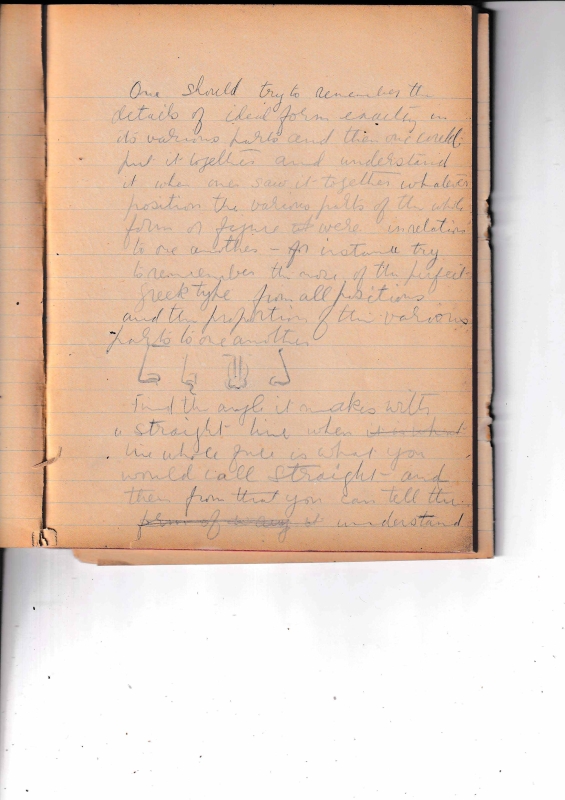 One should try to remember the
details of ideal form exactly in
its various parts and then one could
put it together and understand
it when one saw it together whatever
position the various parts of the whole
form or figure were in relation
to one another – for instance try
to remember the nose of the perfect
Greek type from all positions
and the proportion of the various
parts to one another
Find the angle it makes with
a straight line when
the whole face is what you
would call straight – and
then from that you can tell the
form of understand